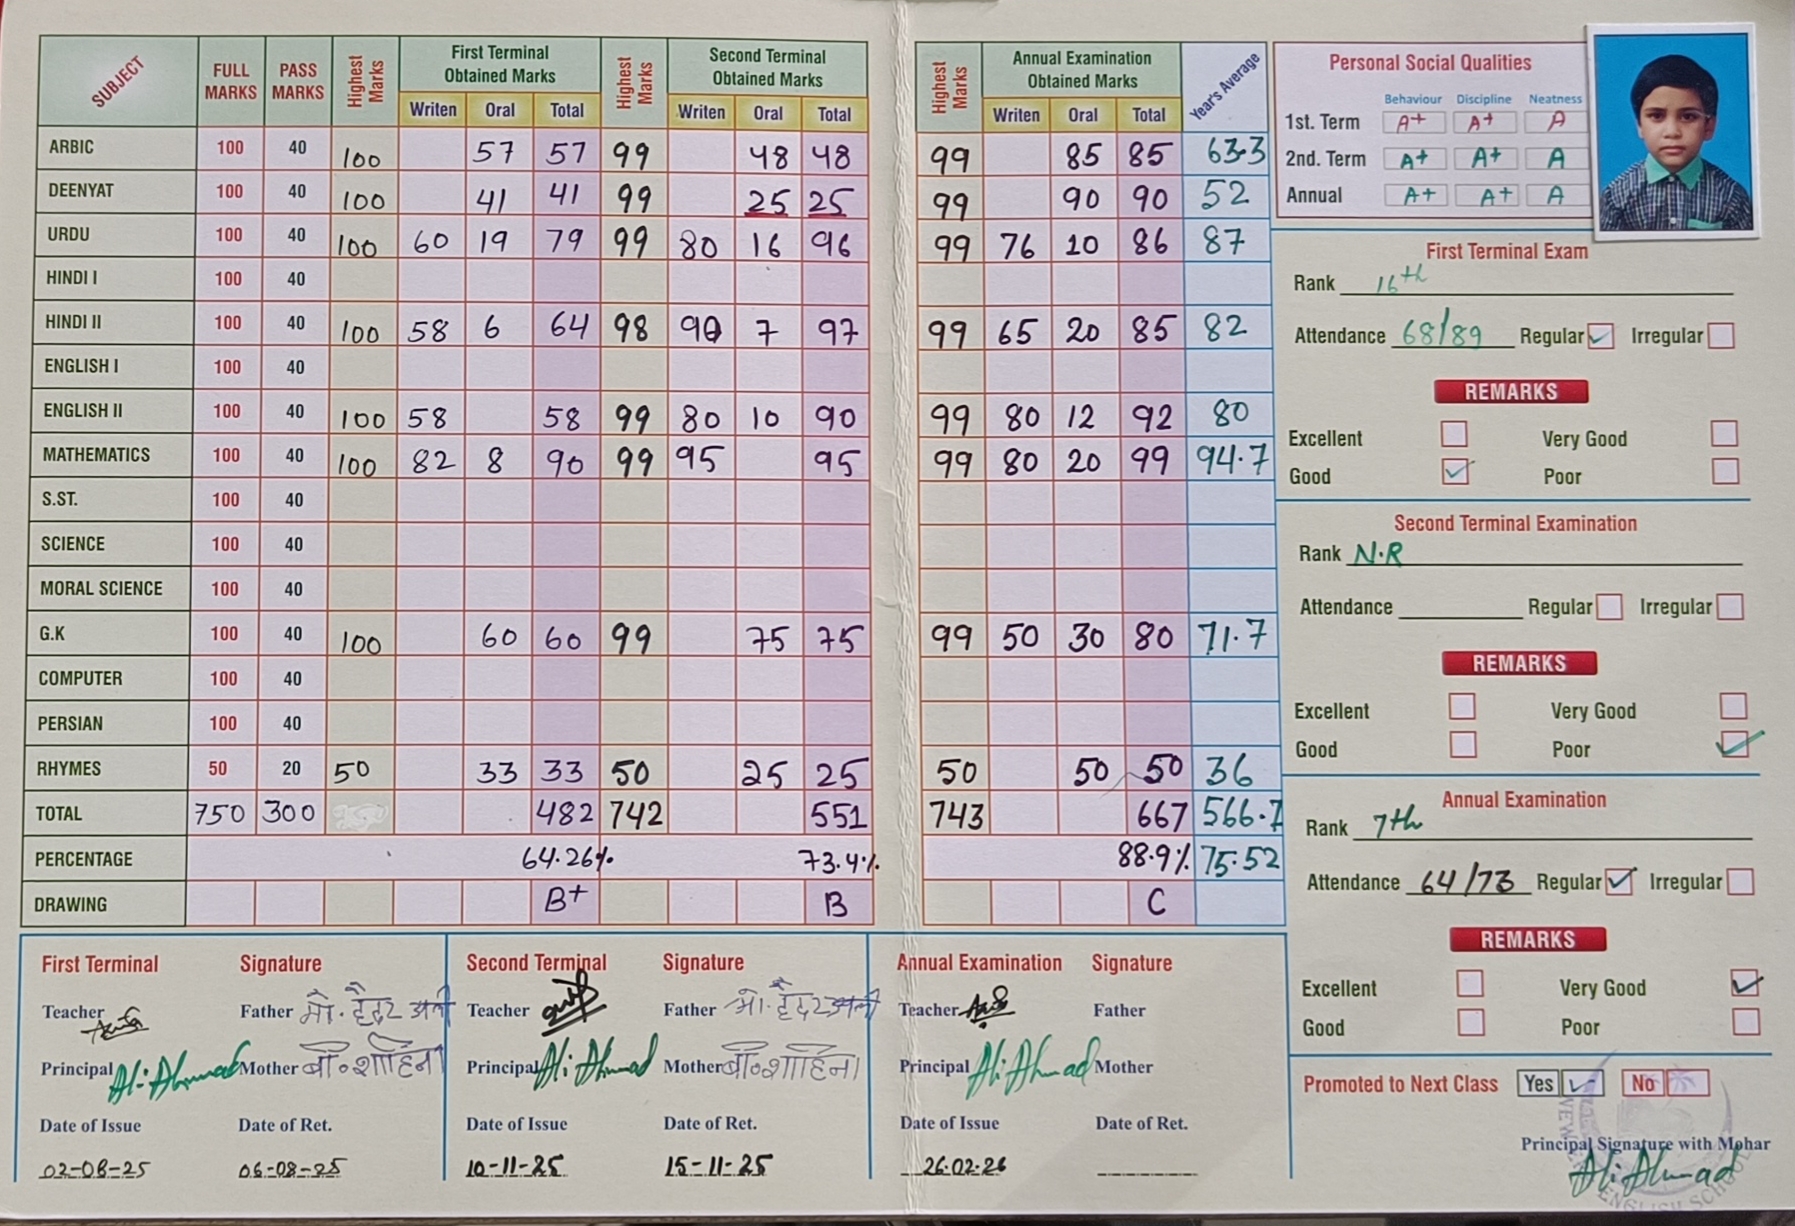 SUBJECT FULL MARKS PASS MARKS Highest Marks First Terminal Obtained Marks Highest Marks Second Terminal Obtained Marks Highest Marks Annual Examination Obtained Marks Year's Average
Writen Oral Total Writen Oral Total Writen Oral Total
ARBIC 100 40 100 57 57 99 48 48 99 85 85 63.3
DEENYAT 100 40 100 41 41 99 25 25 99 90 90 52
URDU 100 40 100 60 19 79 99 80 16 96 99 76 10 86 87
HINDI I 100 40
HINDI II 100 40 100 58 6 64 98 90 7 97 99 65 20 85 82
ENGLISH I 100 40
ENGLISH II 100 40 100 58 58 99 80 10 90 99 80 12 92 80
MATHEMATICS 100 40 100 82 8 90 99 95 95 99 80 20 99 94.7
S.ST. 100 40
SCIENCE 100 40
MORAL SCIENCE 100 40
G.K 100 40 100 60 60 99 75 75 99 50 30 80 71.7
COMPUTER 100 40
PERSIAN 100 40
RHYMES 50 20 50 33 33 50 25 25 50 50 50 36
TOTAL 750 300 482 742 551 743 667 566.7
PERCENTAGE 64.26% 73.4% 88.9% 75.52
DRAWING B+ B C
Personal Social Qualities
Behaviour Discipline Neatness
1st. Term A+ A+ A
2nd. Term A+ A+ A
Annual A+ A+ A
First Terminal Exam
Rank 16th
Attendance 68/89 Regular Irregular
REMARKS
Excellent Very Good
Good Poor
Second Terminal Examination
Rank N.R
Attendance Regular Irregular
REMARKS
Excellent Very Good
Good Poor
Annual Examination
Rank 7th
Attendance 64/73 Regular Irregular
REMARKS
Excellent Very Good
Good Poor
Promoted to Next Class Yes No
Principal Signature with Mohar
Ali Ahmad
First Terminal Signature
Teacher Father मो. हैदर अली
Principal Ali Ahmad Mother बी० शाहिना
Date of Issue Date of Ret.
02-08-25 06-08-25
Second Terminal Signature
Teacher Father मो. हैदर अली
Principal Ali Ahmad Mother बी० शाहिना
Date of Issue Date of Ret.
10-11-25 15-11-25
Annual Examination Signature
Teacher Father
Principal Ali Ahmad Mother
Date of Issue Date of Ret.
26.02.26
ENGLISH SCHOOL